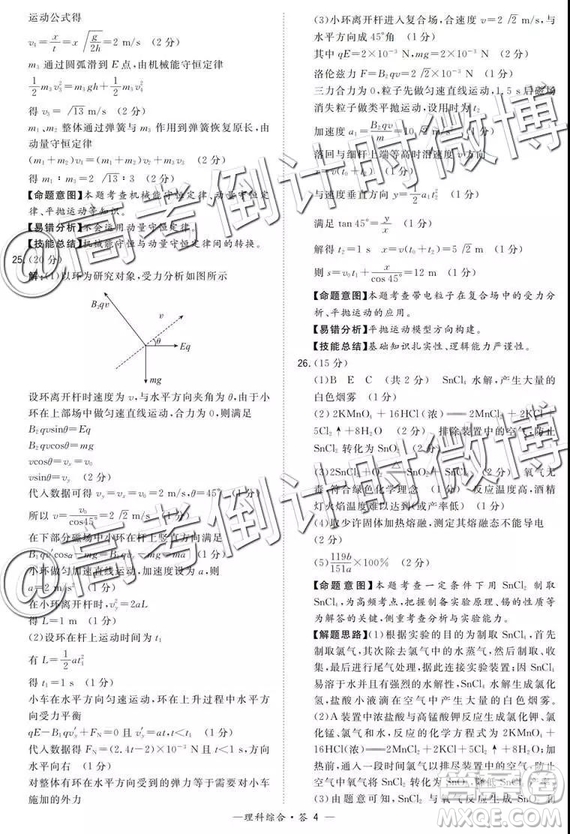 运动公式得
v₁=x/t=x√(g/2h)=2 m/s (2分)
m₃通过圆弧滑到E点,由机械能守恒定律
½m₃v₂²=m₃gh+½m₃v₁²
得v₂=√13 m/s (2分)
m₁、m₂整体通过弹簧与m₃作用到弹簧恢复原长,由
动量守恒定律
(m₁+m₂)v₁=m₃v₂ (2分)
得(m₁+m₂)∶m₃=√13∶3 (2分)
【命题意图】本题考查机械能守恒定律、动量守恒定
律、平抛运动等知识。
【易错分析】不会运用动量守恒定律。
【技能总结】机械能守恒与动量守恒定律间的转换。
25.(20分)
解:(1)以环为研究对象,受力分析如图所示
B₂qv
v
θ
Eq
mg
设环离开杆时速度为v,与水平方向夹角为θ,由于小
环在上部场中做匀速直线运动,合力为0,则满足
B₂qvsinθ=Eq
B₂qvcosθ=mg
vcosθ=vₓ=v₀
vsinθ=v_y
代入数据可得v₀=2 m/s,θ=45° (1分)
所以v=v₀/cos45°=2√2 m/s (1分)
在下部分磁场中小环在杆上竖直方向满足
小环做匀加速直线运动,设加速度为a,则
a=2 m/s² (1分)
在小环离开杆时,v_y²=2aL
得L=1 m (1分)
(2)设环在杆上运动时间为t₁
有L=½at₁²
得t₁=1 s (1分)
小车在水平方向匀速运动,环在上升过程中水平方
向受力平衡
qE-B₁qv′_y+F_N=0 v′_y=at,t<t₁ (2分)
代入数据得F_N=(2.4t-2)×10⁻³ N且t<1 s,方向
水平向右 (1分)
对整体有环在水平方向受到的弹力等于需要对小车
施加的外力
(3)小环离开杆进入复合场,合速度v=2√2 m/s,与
水平方向成45°角 (1分)
其中qE=2×10⁻³ N,mg=2×10⁻³ N
洛伦兹力F=B₂qv=2√2×10⁻³ N (2分)
三力合力为0,粒子先做匀速直线运动,1.5 s后磁场
消失粒子做类平抛运动,设用时为t₂
加速度a₁=B₂qv/m (1分)
落回与细杆上端等高时沿速度v方向
x=v(t₀+t₂) (1分)
与速度垂直方向y=½a₁t₂² (2分)
满足tan45°=y/x (1分)
解得t₂=1 s x=v(t₀+t₂)=5√2 m (1分)
则s=v₀t₁+x/cos45°=12 m (1分)
【命题意图】本题考查带电粒子在复合场中的受力分
析、平抛运动的应用。
【易错分析】平抛运动模型方向构建。
【技能总结】基础知识扎实性、逻辑能力严谨性。
26.(15分)
(1)B E C (共2分) SnCl₄水解,产生大量的
白色烟雾 (2分)
(2)2KMnO₄+16HCl(浓)══2MnCl₂+2KCl+
5Cl₂↑+8H₂O (2分) 排除装置中的空气,防止
SnCl₂转化为SnCl₄ (2分)
无毒,符合绿色化学理念 (1分) 反应温度高,酒精
灯火焰温度达不到(或产率低) (2分)
(4)取少许固体加热熔融,测定其熔融态不能导电
(2分)
(5)119b/151a×100% (2分)
【命题意图】本题考查一定条件下用SnCl₂制取
SnCl₄,为高频考点,把握制备实验原理、实验技能为
解答的关键,侧重分析与实验能力的考查,注意元素
化合物知识与实验相结合。
【解题思路】(1)根据实验的目的为制取SnCl₄,首先
制取氯气,其次除去氯气中的水蒸气,然后制取
SnCl₄,最后进行尾气处理。SnCl₄遇水强烈水解,且
易溶于水及大多数有机溶剂,SnCl₄水解生成氯化
氢,并形成烟雾,产生大量的白色烟雾。
(2)A装置中浓盐酸与高锰酸钾反应生成氯化钾、氯
化锰、氯气和水,反应的化学方程式为2KMnO₄+
16HCl(浓)══2MnCl₂+2KCl+5Cl₂↑+8H₂O。实验
开始前,通入一段时间氯气以排尽装置中的空气,防
止空气中氧气将SnCl₂转化为SnCl₄。
—理科综合·答 4—
@高考倒计时微博